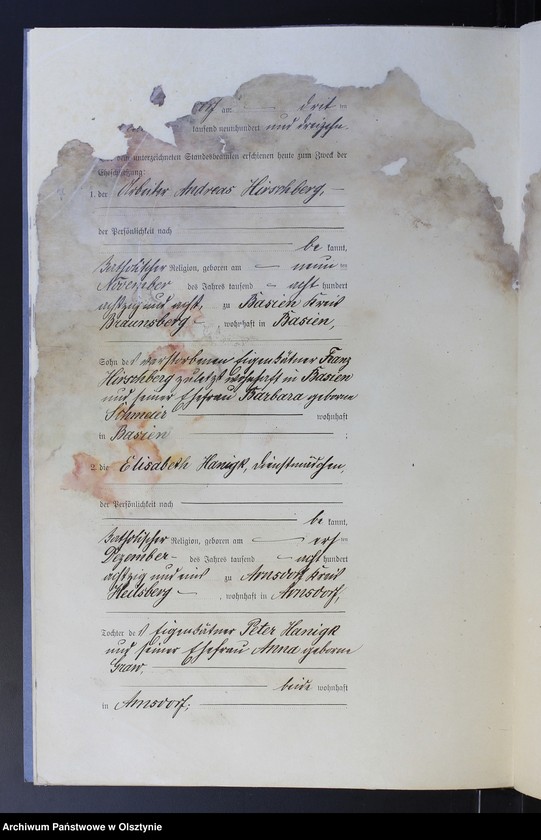 am — drit ten
tausend neunhundert und dreizehn.
unterzeichneten Standesbeamten erschienen heute zum Zweck der
Eheschließung:
1. der Arbeiter Andreas Hirschberg, —
der Persönlichkeit nach
be kannt,
katholischer Religion, geboren am — neun ten
November des Jahres tausend — acht hundert
achtzig und acht zu Basien Kreis
Braunsberg —, wohnhaft in Basien,
Sohn des verstorbenen Eigenkätner Franz
Hirschberg zuletzt wohnhaft in Basien
und seiner Ehefrau Barbara geborne
wohnhaft
in Basien ;
2. die Elisabeth Hanigk, Dienstmädchen,
der Persönlichkeit nach
be kannt,
katholischer Religion, geboren am — ten
Dezember — des Jahres tausend — acht hundert
achtzig und zu Arnsdorf Kreis
Heilsberg —, wohnhaft in Arnsdorf,
Tochter des Eigenkätner Peter Hanigk
und seiner Ehefrau Anna geborne
Graw,
beide wohnhaft
in Arnsdorf;
Archiwum Państwowe w Olsztynie